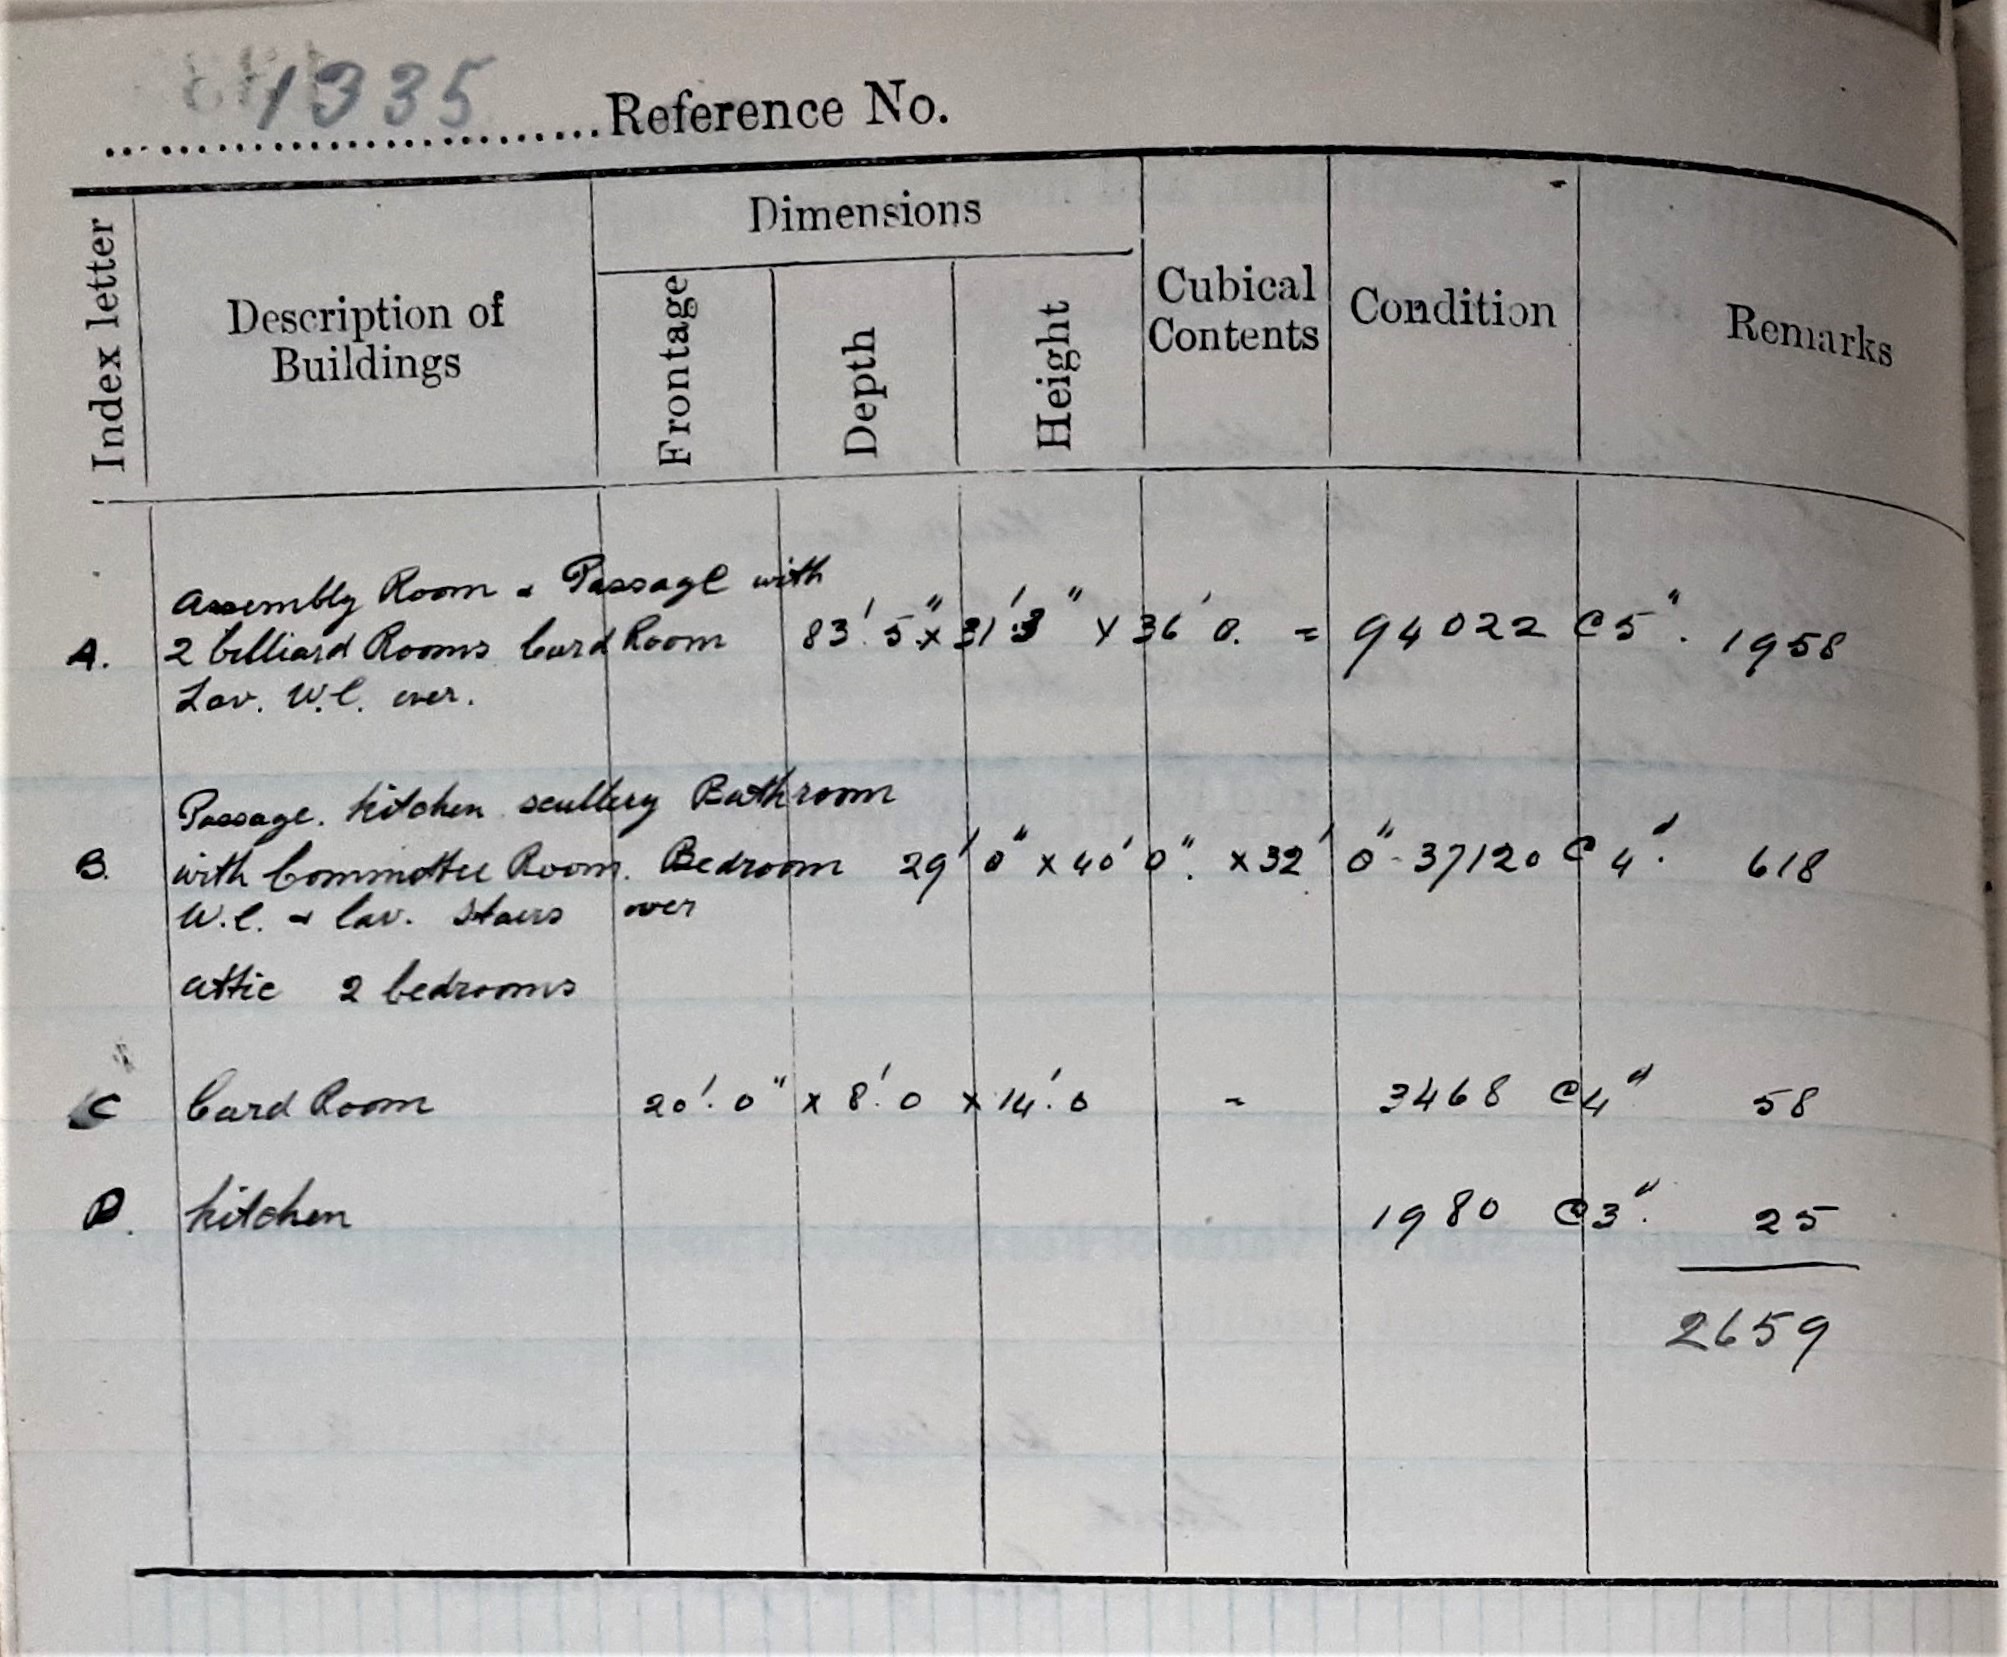 1335 Reference No.
Index letter
Description of Buildings
Dimensions
Frontage
Depth
Height
Cubical Contents
Condition
Remarks
Assembly Room & Passage with
A. 2 billiard Rooms Card Room 83' 5" x 31' 3" x 36' 0. = 94022 @ 5". 1958
Lav. W.C. over.
Passage. Kitchen scullery Bathroom
B. with Committee Room. Bedroom 29' 0" x 40' 0". x 32' 0" - 37120 @ 4d. 618
W.C. & lav. Stairs over
attic 2 bedrooms
C Card Room 20'. 0" x 8'. 0 x 14'. 0 = 3468 @ 4d 58
D. Kitchen 1980 @ 3d. 25
2659